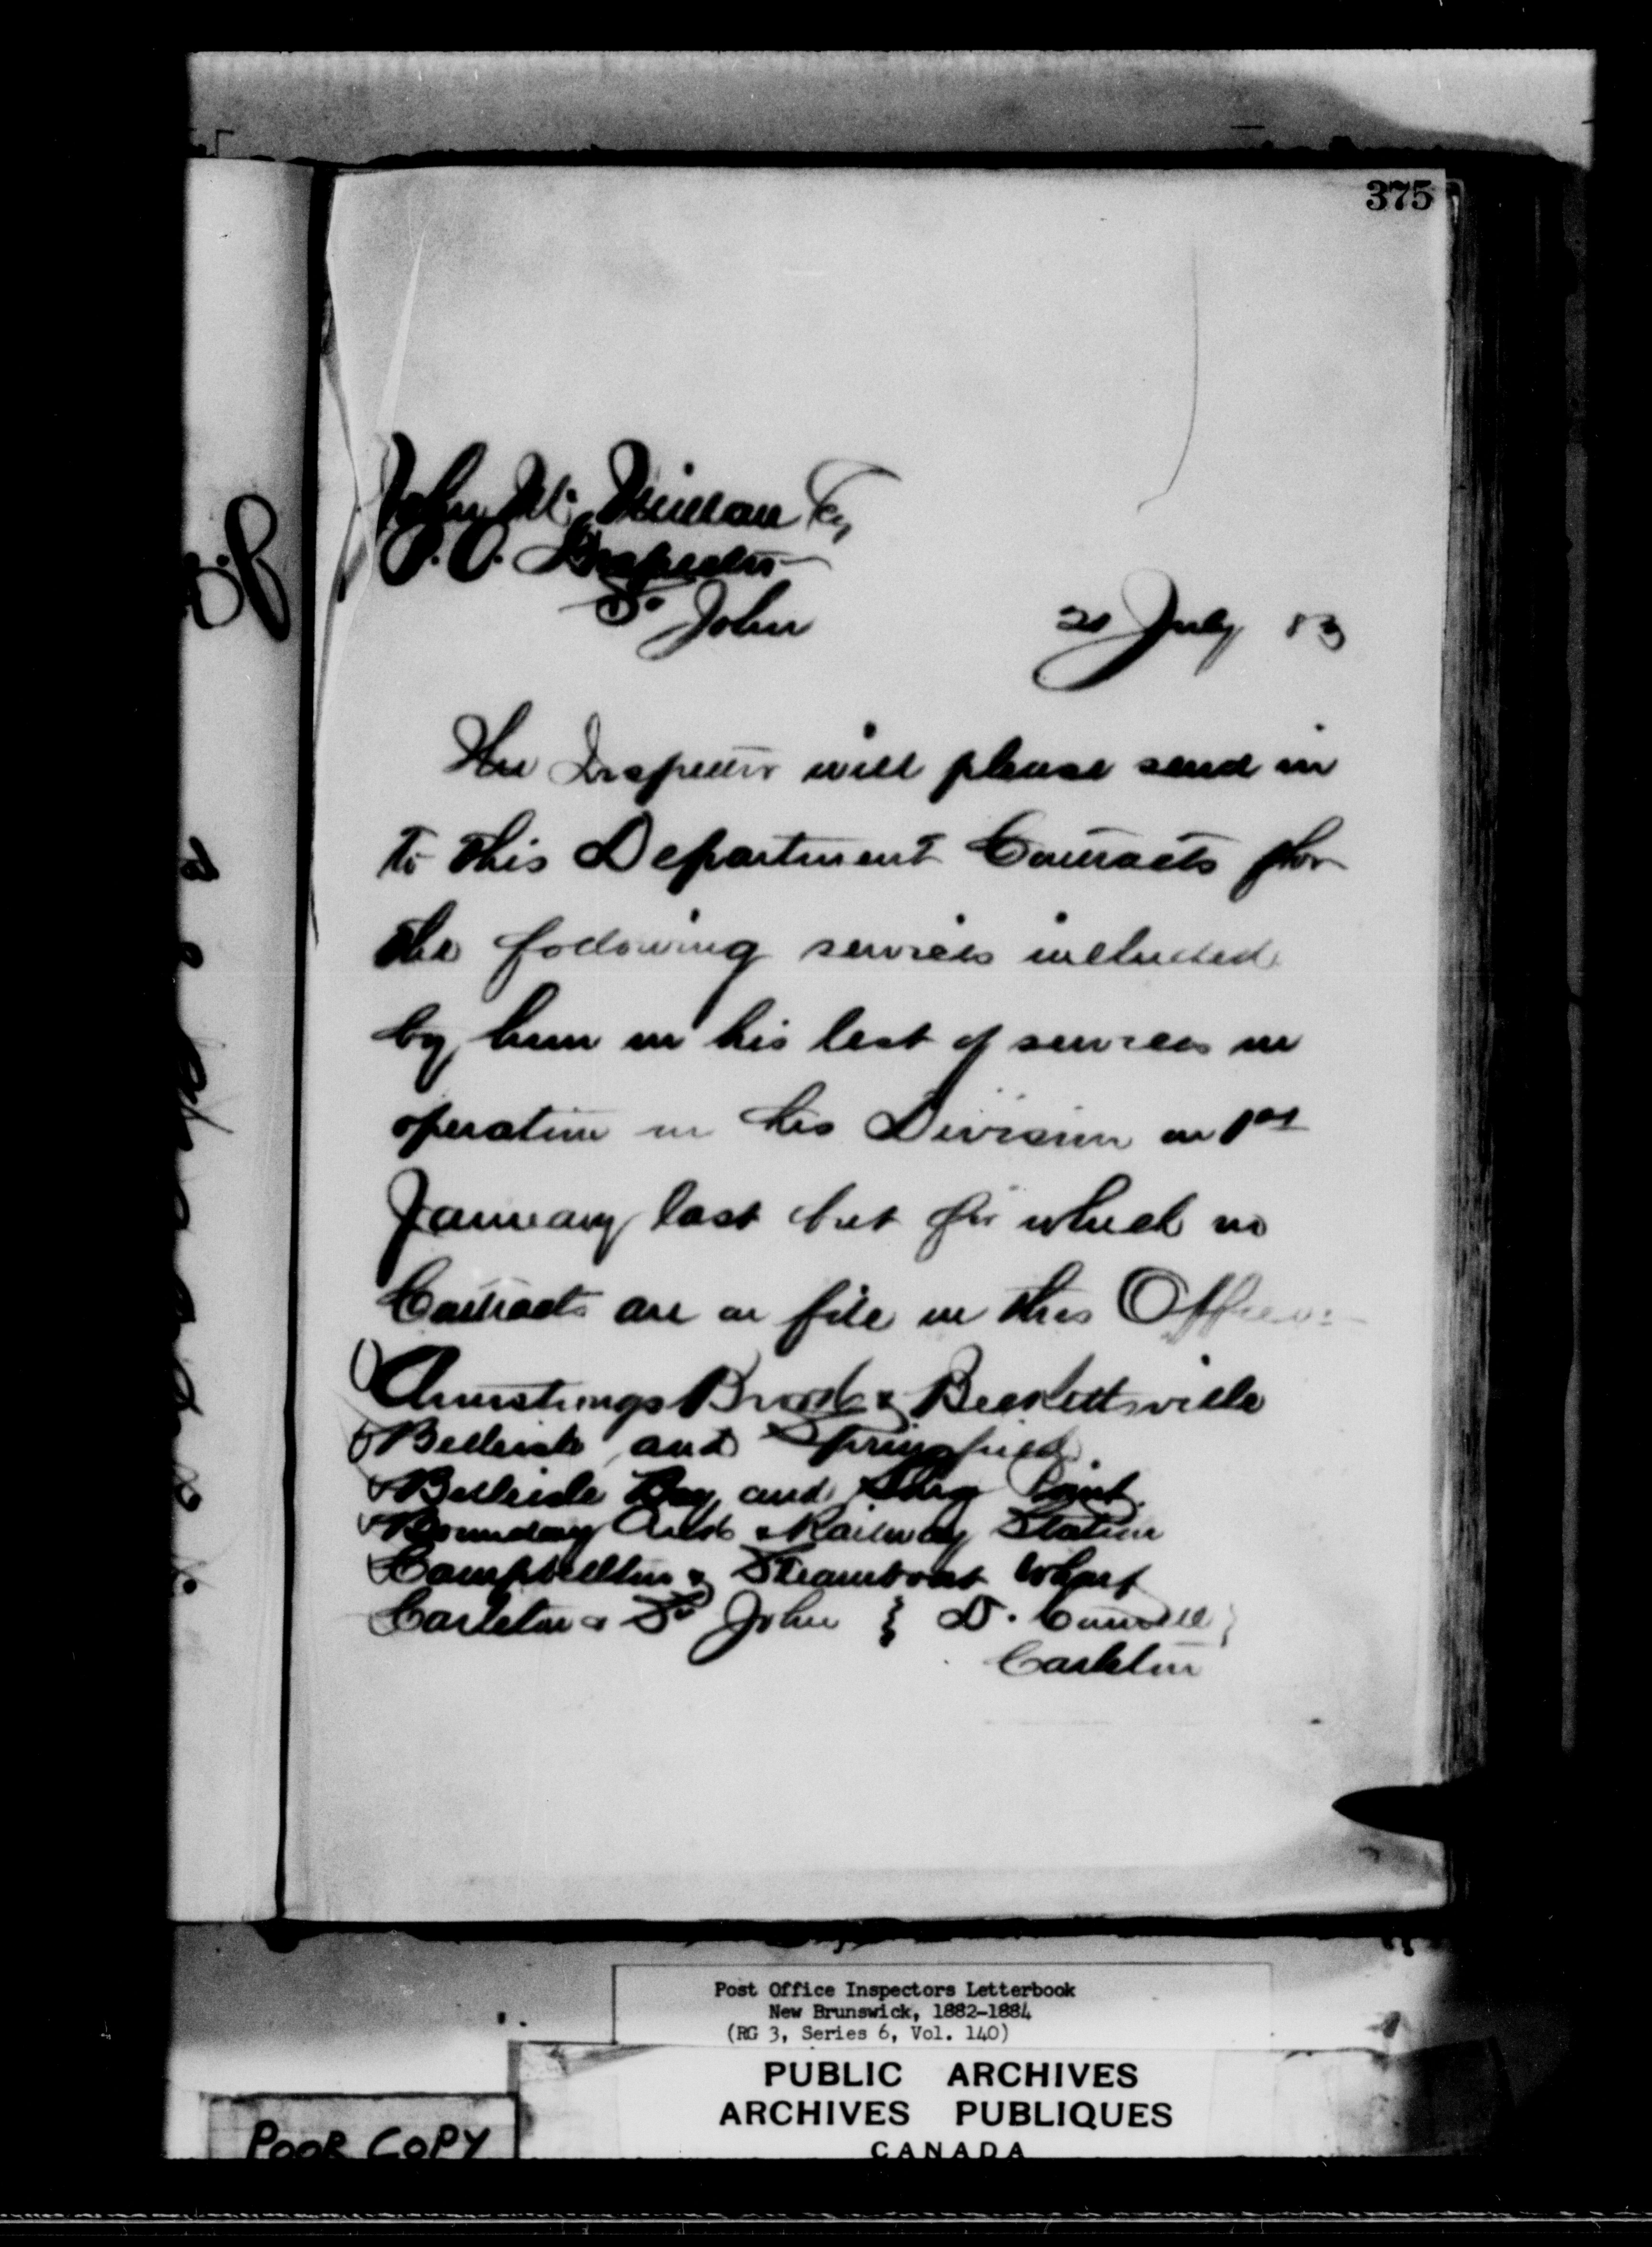 375
John McMillan Esq
P. O. Inspector
St John
20 July 83
The Inspector will please send in
to this Department Contracts for
the following services included
by him in his list of services in
operation in his Division on 1st
January last but for which no
Contracts are on file in this Office:
Armstrongs Brook & Beckettsville
Belleisle and Springfield
Belleisle Bay and Long Point
Boundary Creek & Railway Station
Campbellton & Steamboat Wharf
Carleton & St John } D.
Carleton
Post Office Inspectors Letterbook
New Brunswick, 1882-1884
(RG 3, Series 6, Vol. 140)
PUBLIC ARCHIVES
ARCHIVES PUBLIQUES
CANADA
POOR COPY